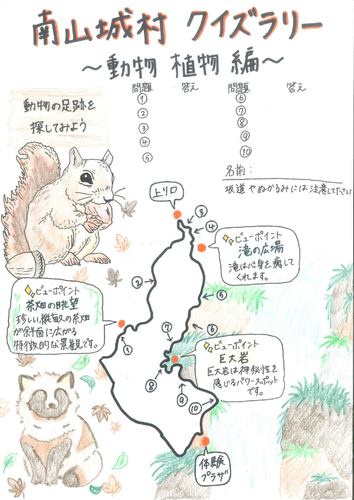 南山城村 クイズラリー
～動物 植物 編～
動物の足跡を
探してみよう
問題 答え 問題 答え
① ⑥
② ⑦
③ ⑧
④ ⑨
⑤ ⑩
名前：
坂道やぬかるみには注意して下さい
上り口
③
④
ビューポイント
滝の広場
滝は心身を癒して
くれます。
②
⑤
ビューポイント
茶畑の眺望
珍しい縦畝の茶畑
が斜面に広がる
特徴的な景観です。
①
⑥
⑦
ビューポイント
巨大岩
巨大岩は神秘性を
感じるパワースポット
です。
⑧
⑨
⑩
体験
プラザ